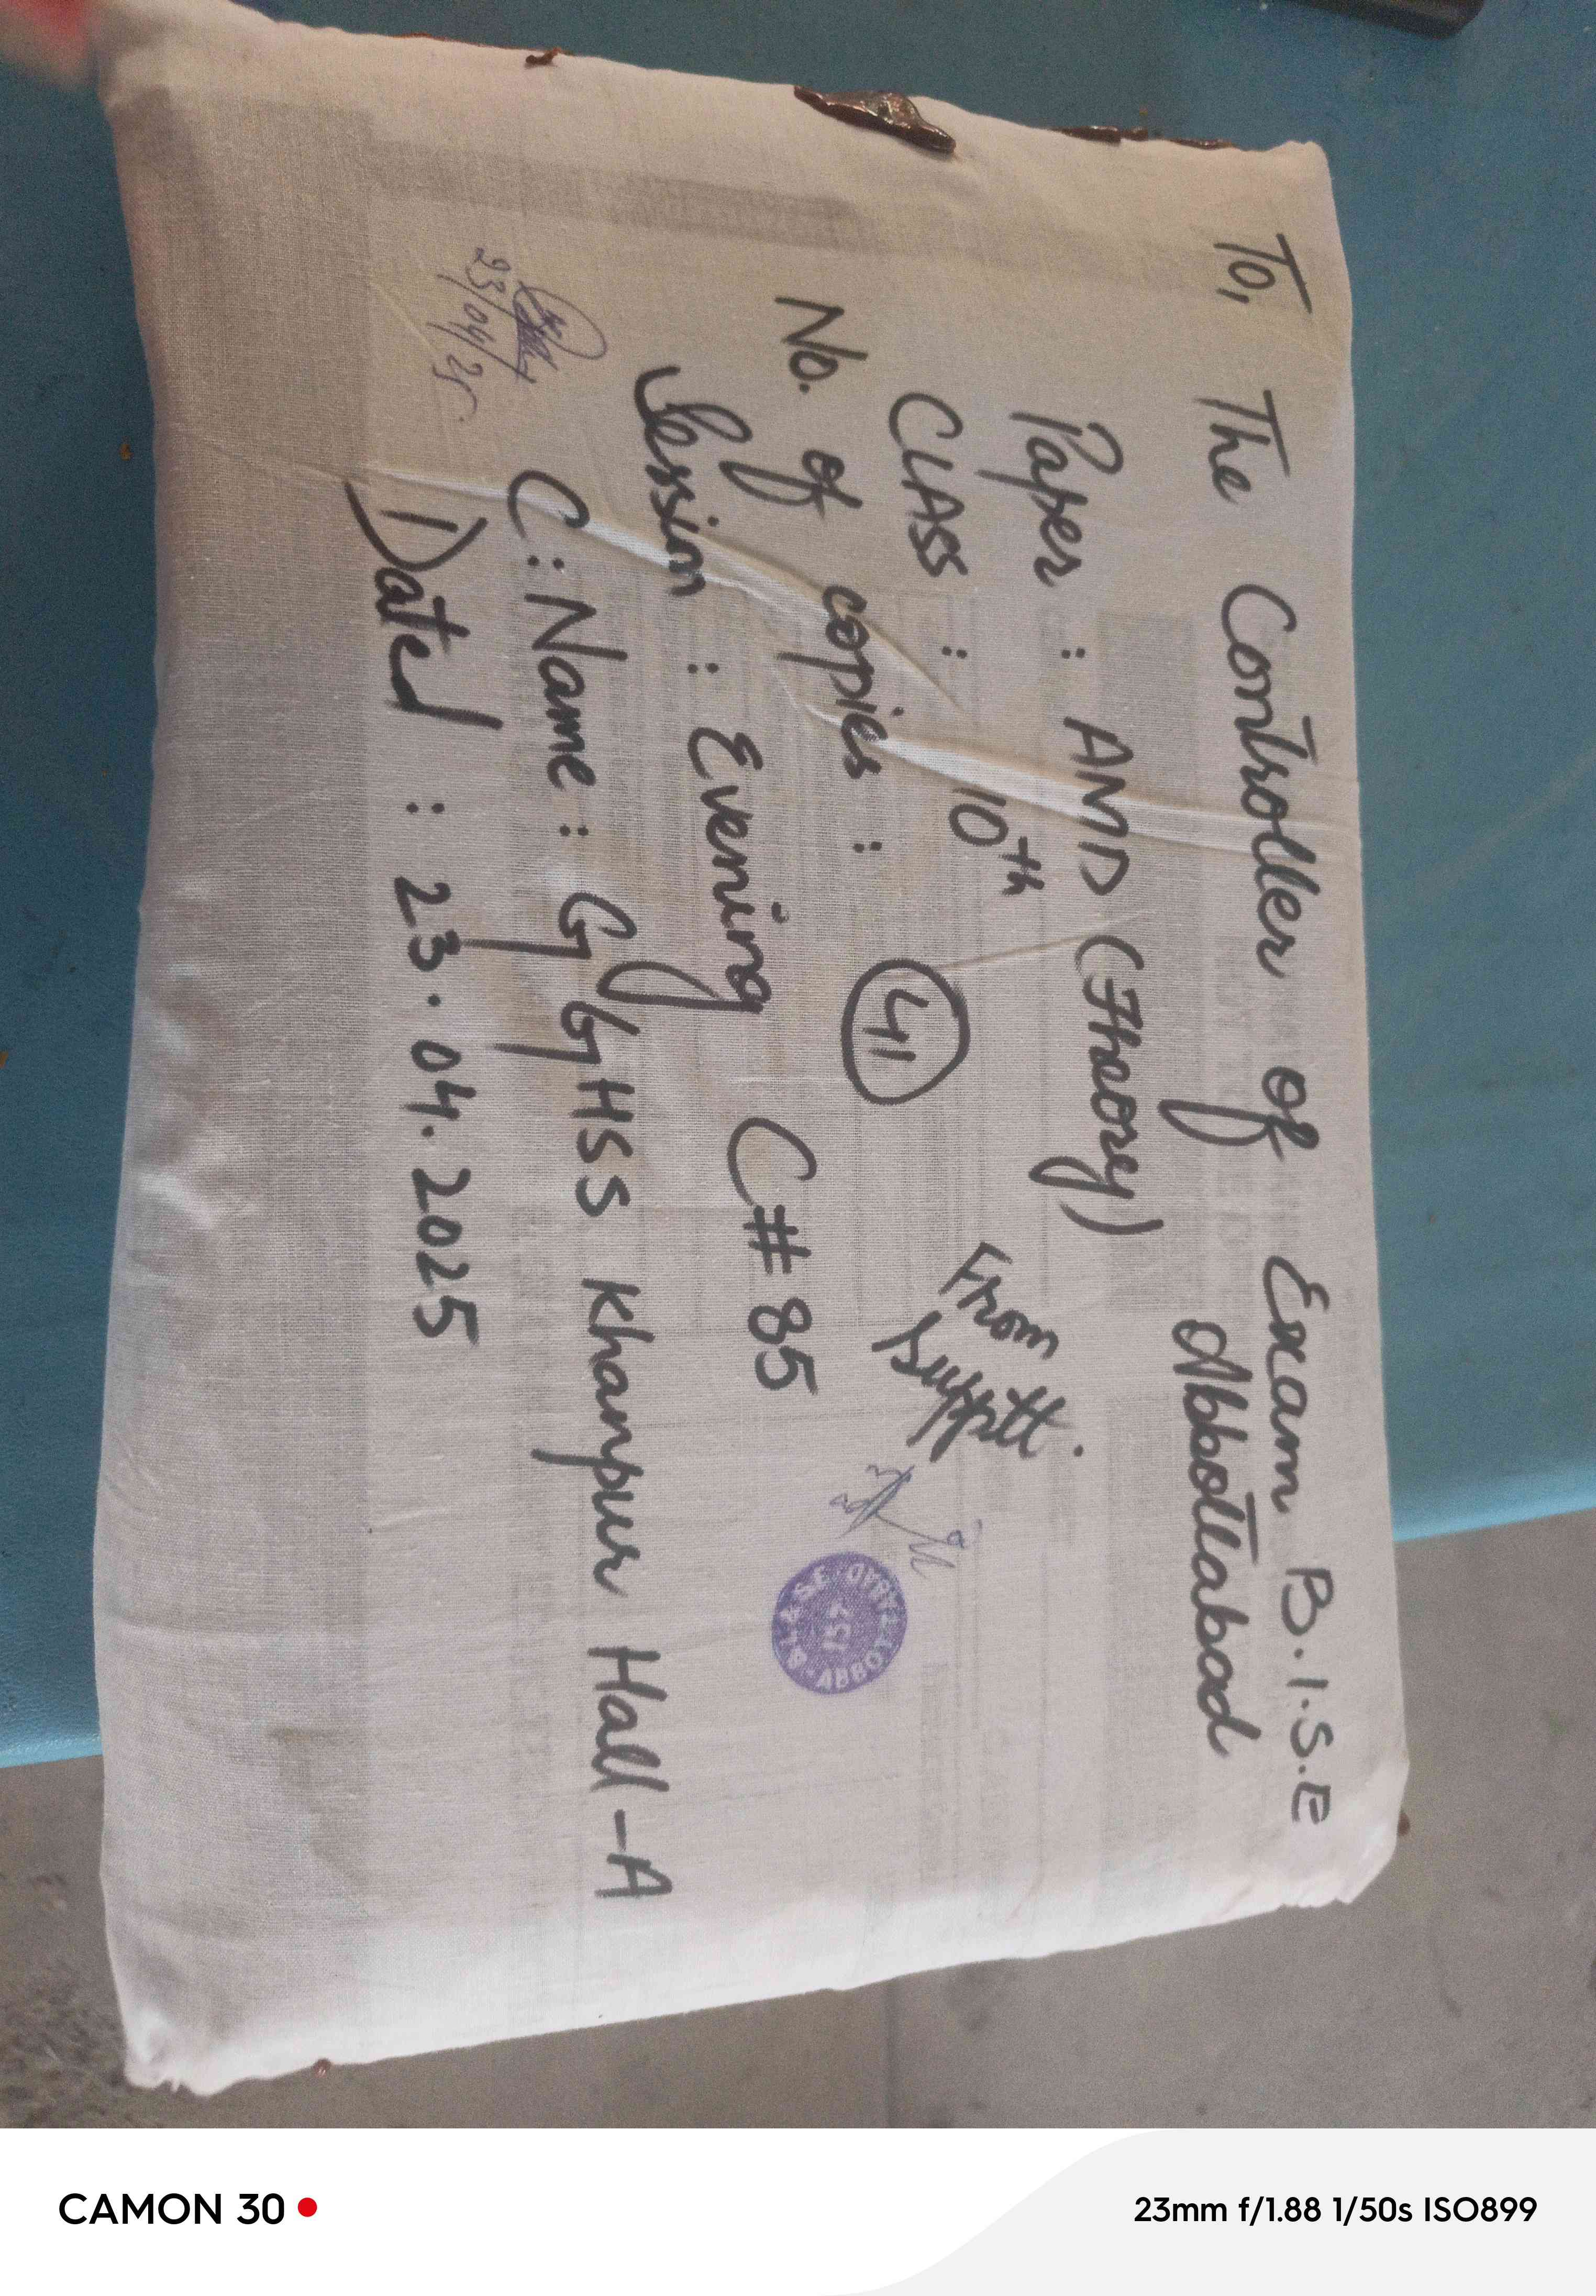 To, The Controller of Exam B.I.S.E
Abbottabad
Paper : AMD (Theory)
CLASS : 10th
From
Supptt.
No. of copies : 41
Session : Evening C# 85
C: Name : GGHSS Khanpur Hall-A
Dated : 23.04.2025
23/04/25
B.I.&S.E. ABBOTTABAD
157
CAMON 30
23mm f/1.88 1/50s ISO899